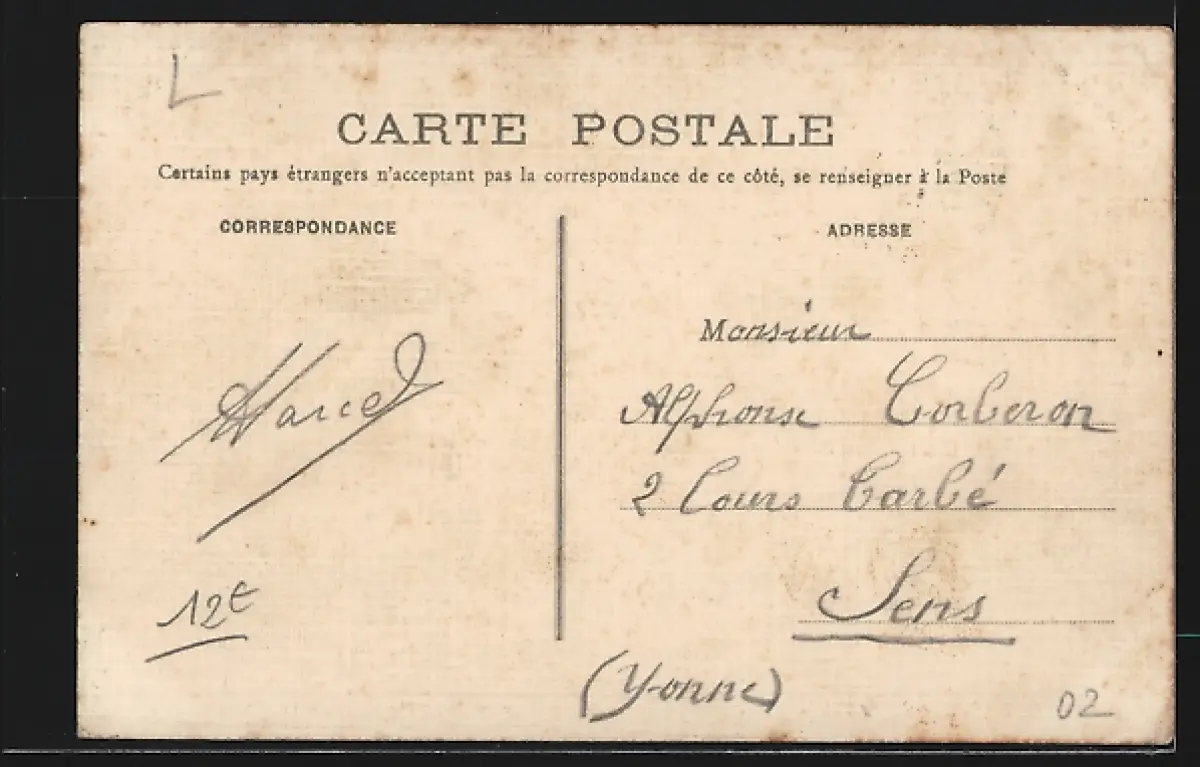 CARTE POSTALE
Certains pays étrangers n'acceptant pas la correspondance de ce côté, se renseigner à la Poste
CORRESPONDANCE
ADRESSE
Monsieur
Alphonse Corberon
2 Cours Tarbé
Sens
(Yonne)
Marcel
12€
02